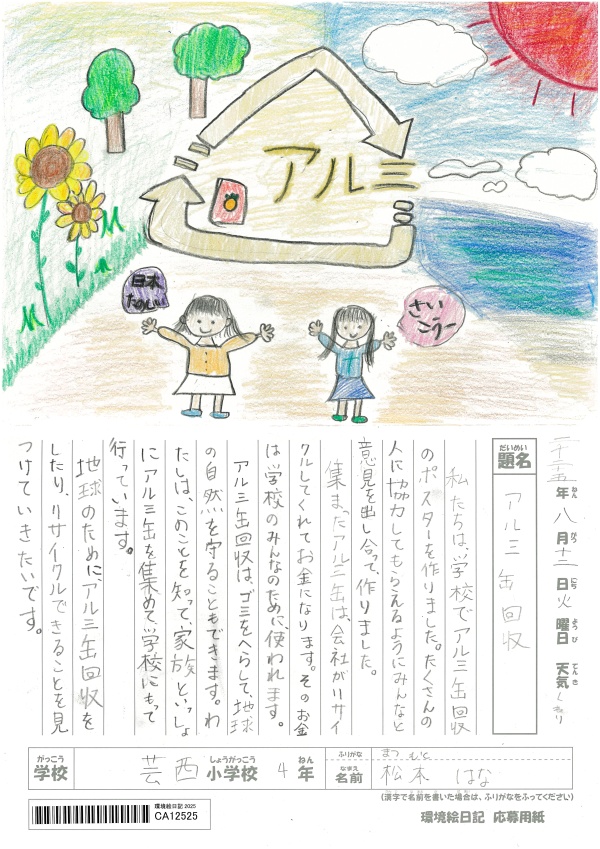 アルミ
日本
たのしい
さい
こう！
二〇二五年八月十二日火曜日 天気くもり
ねん がつ にち ようび てんき
だいめい
題名
アルミ缶回収
私たちは、学校でアルミ缶回収
のポスターを作りました。たくさんの
人に協力してもらえるようにみんなと
意見を出し合って、作りました。
集まったアルミ缶は、会社がリサイ
クルしてくれてお金になります。そのお金
は学校のみんなのために、使われます。
アルミ缶回収は、ゴミをへらして、地球
の自然を守ることもできます。わ
たしは、このことを知って、家族といっしょ
にアルミ缶を集めて、学校にもって
行っています。
地球のために、アルミ缶回収を
したり、リサイクルできることを見
つけていきたいです。
がっこう しょうがっこう ねん
学校 芸西小学校 4年
ふりがな まつもと
なまえ
名前 松本 はな
(漢字で名前を書いた場合は、ふりがなをふってください)
環境絵日記 2025
CA12525
環境絵日記 応募用紙